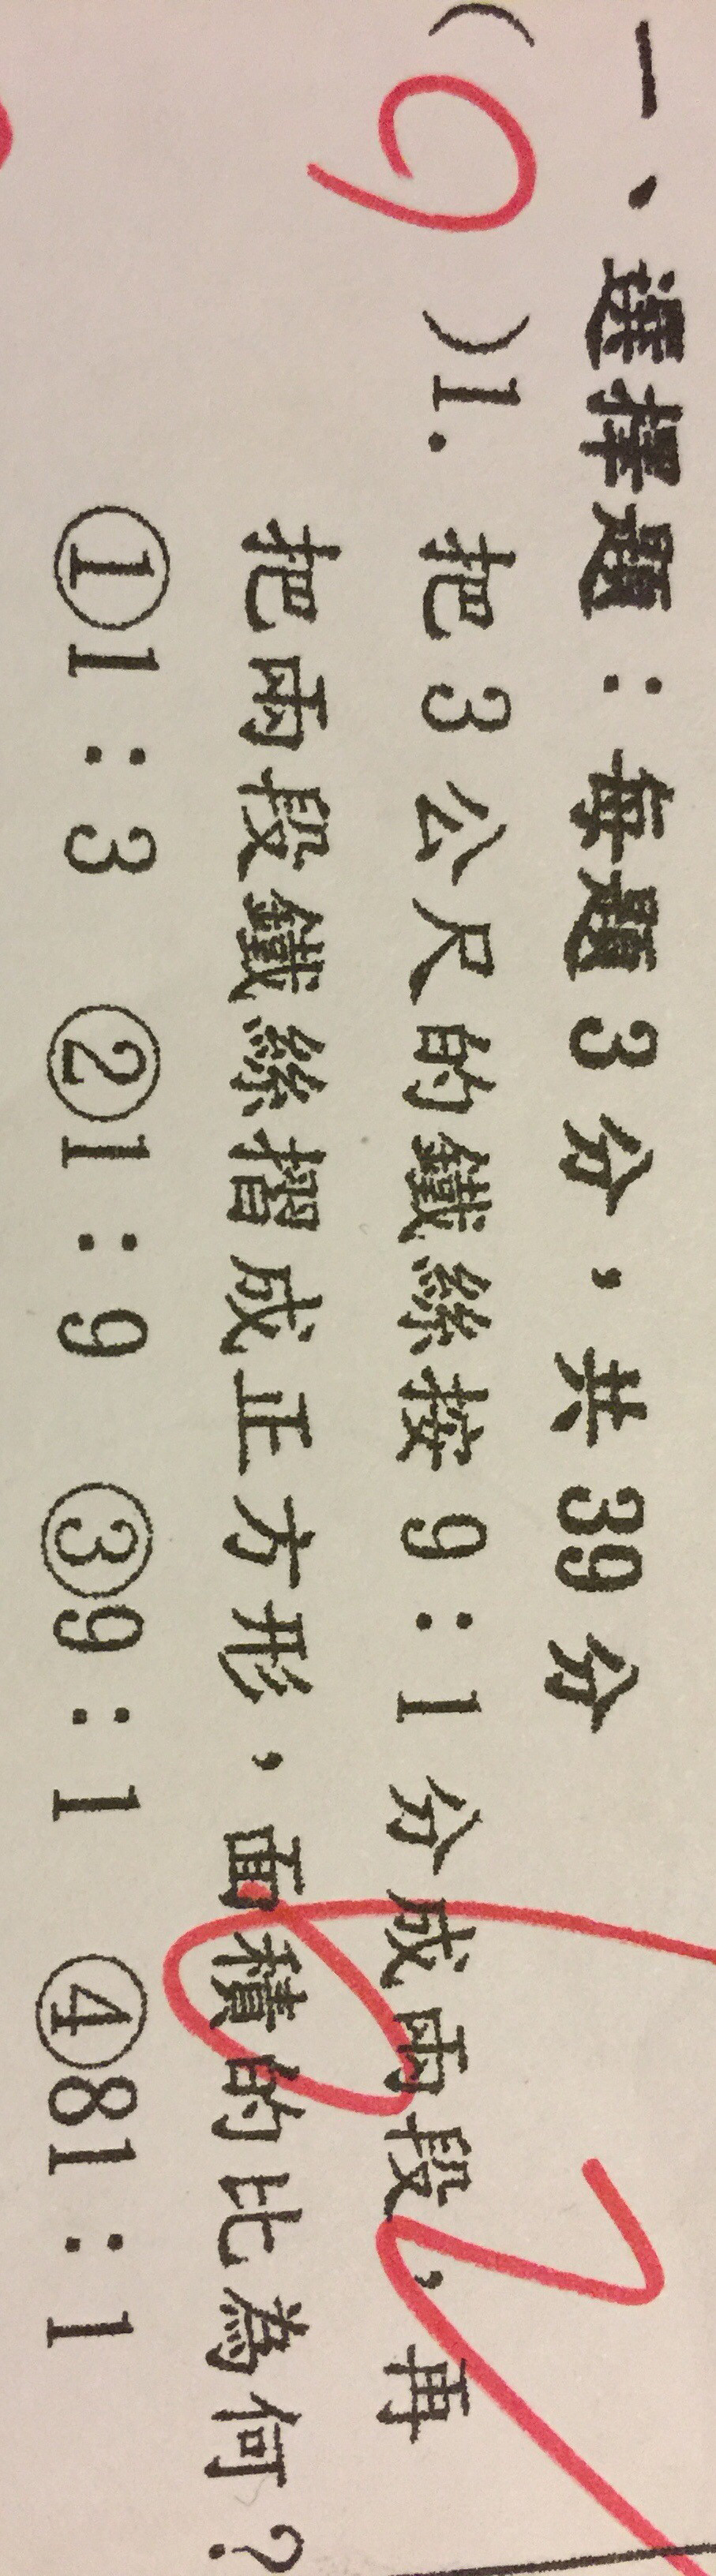 一、選擇題：每題3分，共39分
(9)1. 把3公尺的鐵絲按9：1分成兩段，再
把兩段鐵絲摺成正方形，面積的比為何？
①1：3 ②1：9 ③9：1 ④81：1